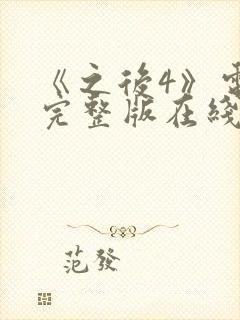 《之後4》
完整版在綫
范發